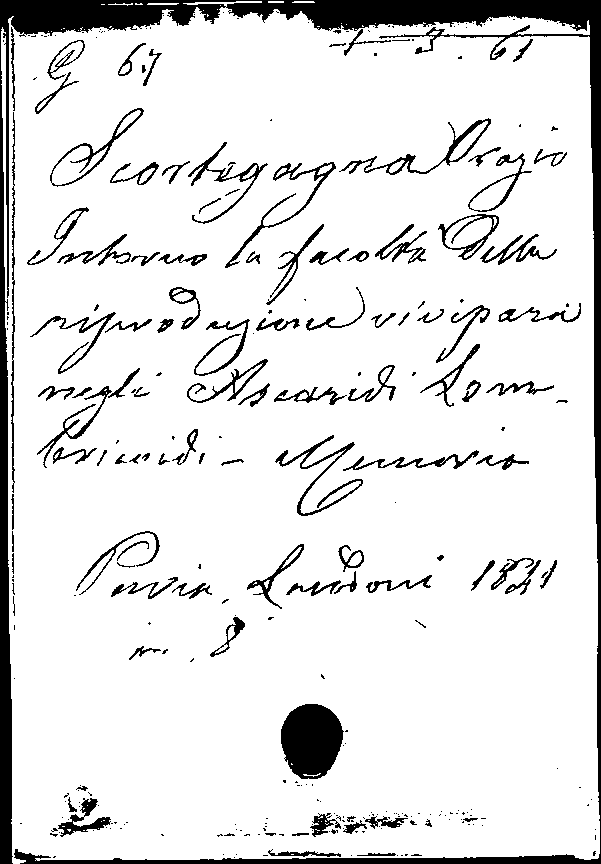 G 67 1. 3. 61
Scortegagna Orazio
Intorno la facoltà della
riproduzione vivipara
negli Ascaridi Lom-
bricoidi - Memoria
Pavia, 1841
in. 8°